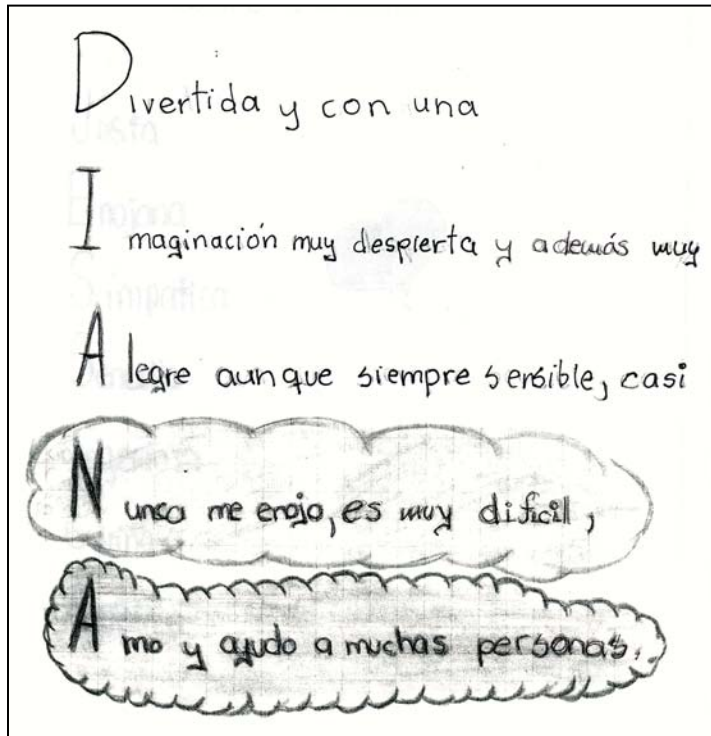 Divertida y con una
Imaginación muy despierta y además muy
Alegre aunque siempre sensible, casi
Nunca me enojo, es muy dificil,
Amo y ayudo a muchas personas.